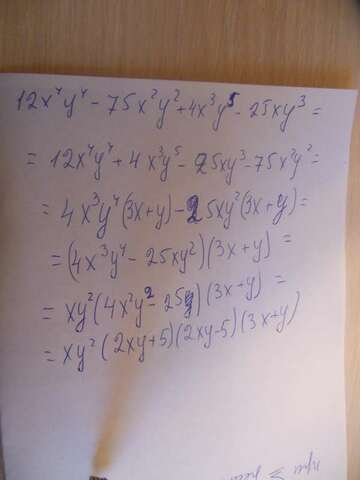 12x⁴y⁴ - 75x²y² + 4x³y⁵ - 25xy³ =
= 12x⁴y⁴ + 4x³y⁵ - 25xy³ - 75x²y² =
= 4x³y⁴(3x+y) - 25xy²(3x+y) =
= (4x³y⁴ - 25xy²)(3x+y) =
= xy²(4x²y² - 25)(3x+y) =
= xy²(2xy+5)(2xy-5)(3x+y)